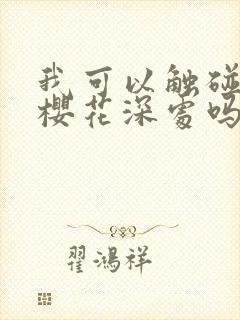 我可以触碰
樱花深处吗
翟鸿祥